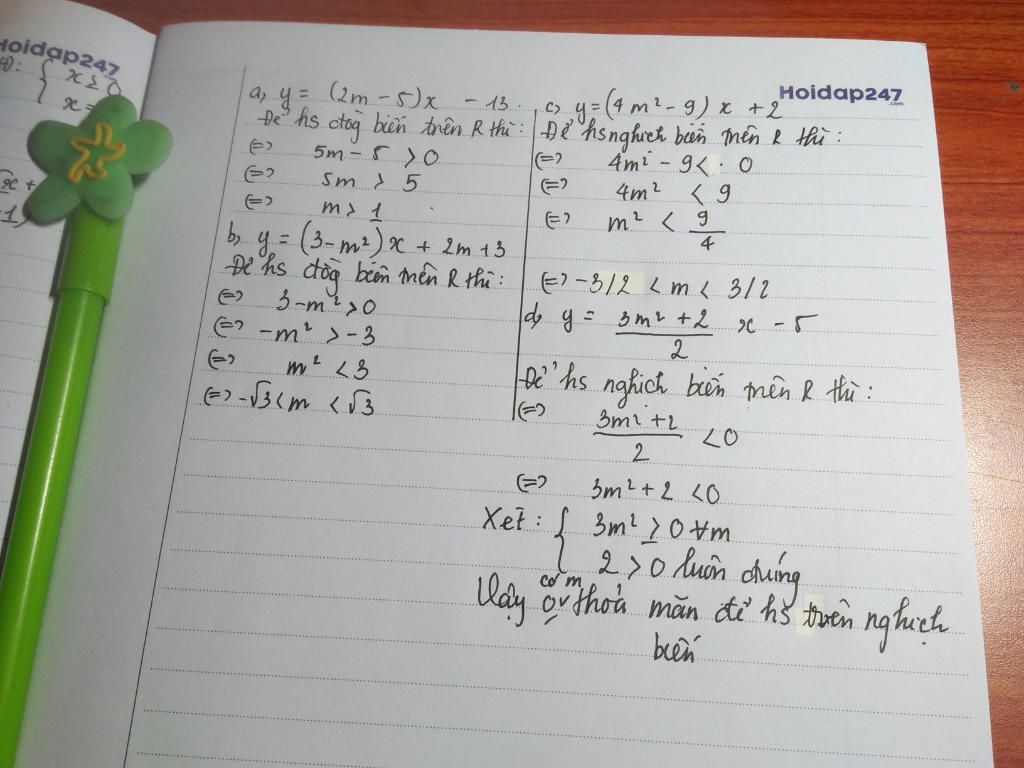 Hoidap247
x ≥ 0
x =
Hoidap247
.com
a, y = (2m - 5)x - 13.
Để hs đồg biến trên R thì:
(=) 5m - 5 > 0
(=) 5m > 5
(=) m > 1
b, y = (3 - m²)x + 2m + 3
Để hs đồg biến trên R thì:
(=) 3 - m² > 0
(=) -m² > -3
(=) m² < 3
(=) -√3 < m < √3
c, y = (4m² - 9) x + 2
Để hs nghịch biến trên R thì:
(=) 4m² - 9 < 0
(=) 4m² < 9
(=) m² < 9/4
(=) -3/2 < m < 3/2
d, y = (3m² + 2)/2 x - 5
Để hs nghịch biến trên R thì:
(=) (3m² + 2)/2 < 0
(=) 3m² + 2 < 0
Xét: { 3m² ≥ 0 ∀m
2 > 0 luôn đúng
Vậy có m thoả mãn để hs trên nghịch
biến